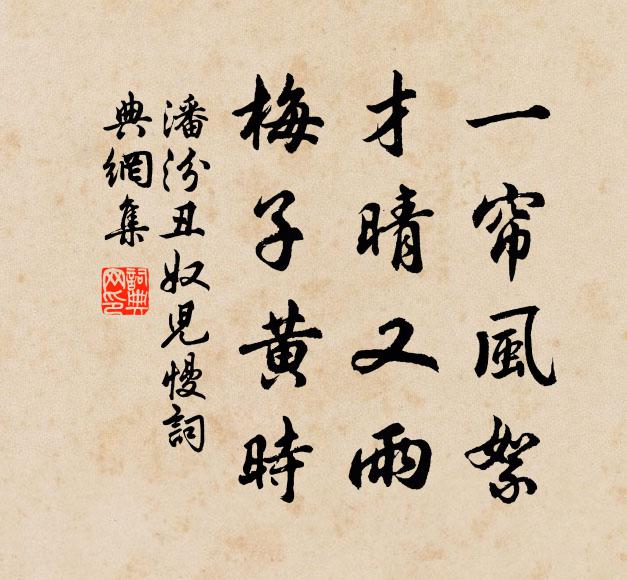 一帘風絮
才晴又雨
梅子黄時
潘汾丑奴兒慢詞
典網集
詞典網印